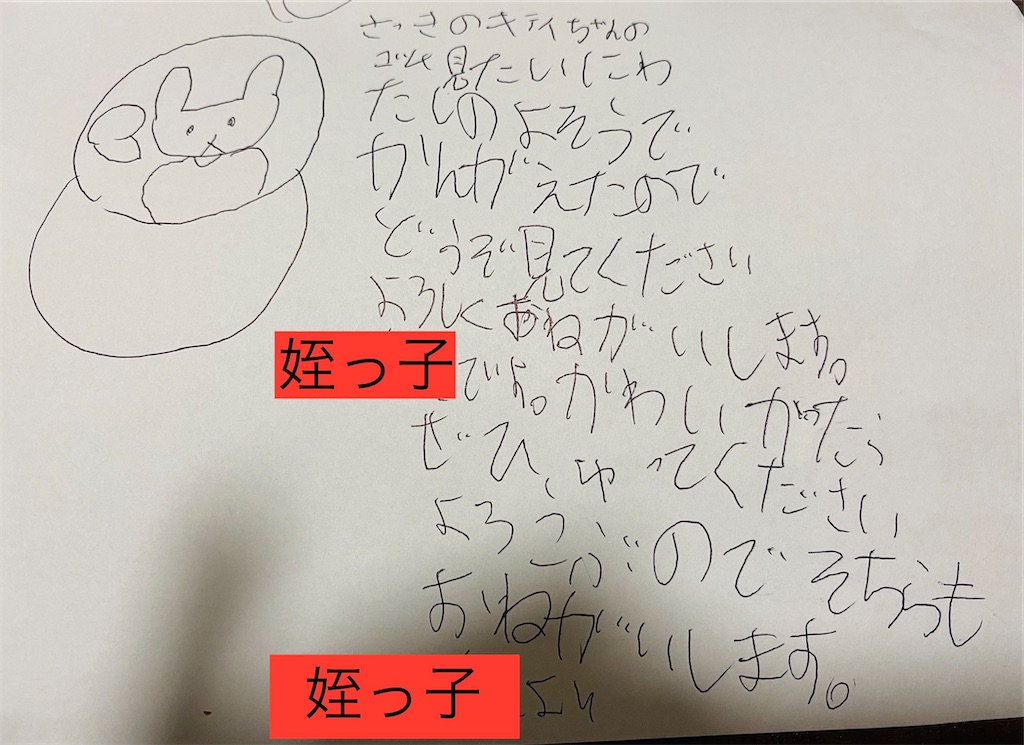 さっきのキティちゃんの
見たいにわ
たしのよそうで
かんがえたので
どうぞ見てください
よろしくおねがいします。
姪っ子 です。かわいかったら
ぜひ、ゆってください
よろこぶのでそちらも
おねがいします。
姪っ子 より